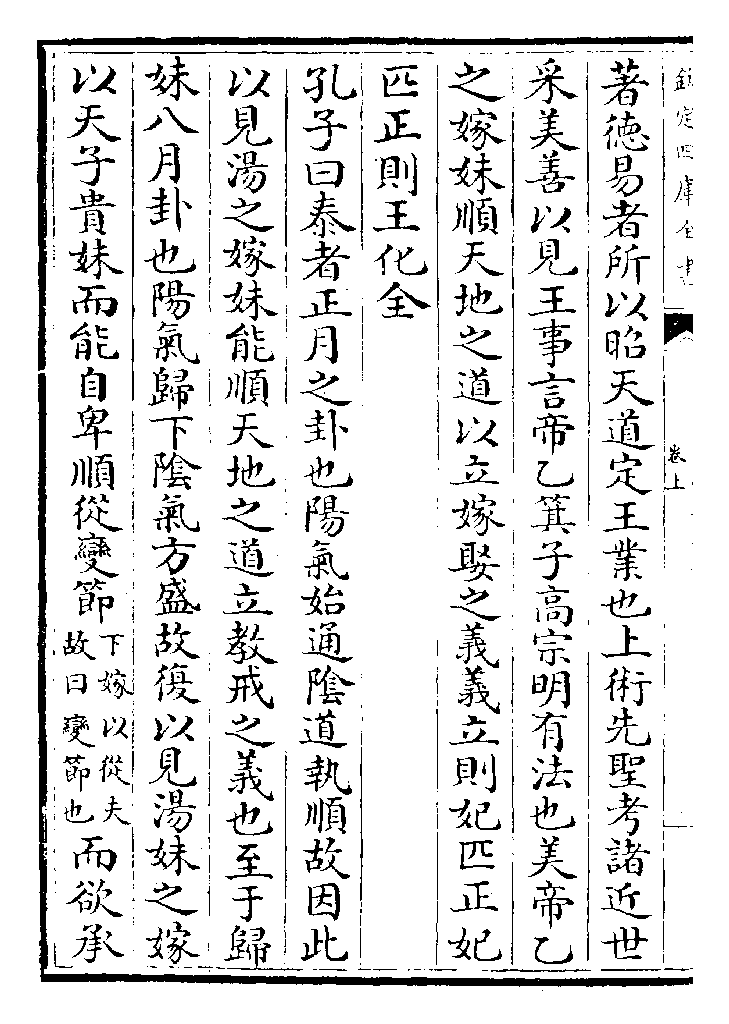 欽定四庫全書
卷上
著德易者所以昭天道定王業也上術先聖考諸近世
采美善以見王事言帝乙箕子高宗明有法也美帝乙
之嫁妹順天地之道以立嫁娶之義義立則妃匹正妃
匹正則王化全
孔子曰泰者正月之卦也陽氣始通陰道執順故因此
以見湯之嫁妹能順天地之道立教戒之義也至于歸
妹八月卦也陽氣歸下陰氣方盛故復以見湯妹之嫁
以天子貴妹而能自卑順從變節下嫁以從夫故曰變節也而欲承